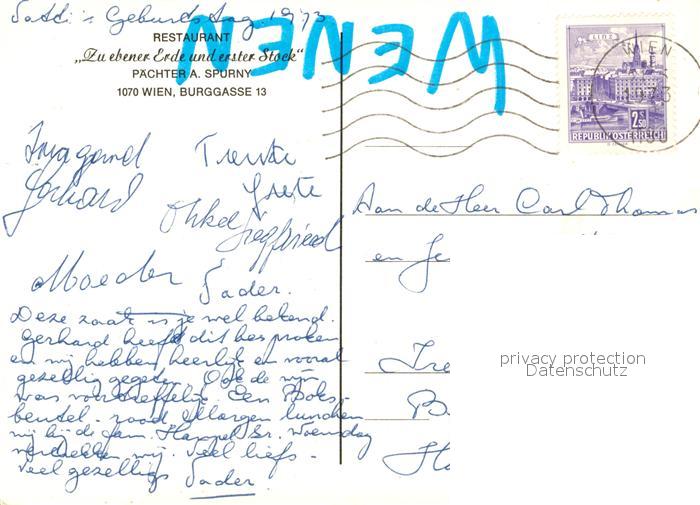 Geburtstag 1973
RESTAURANT
„Zu ebener Erde und erster Stock“
PÄCHTER A. SPURNY
1070 WIEN, BURGGASSE 13
WENEN
LINZ
WIEN
2.50
REPUBLIK ÖSTERREICH
Irmgard
Gerhard
Grete
Onkel Siegfried
Moeder
Vader.
Deze zaak is je wel bekend.
Gerhard heeft dit besproken
en wij hebben heerlijk en vooral
gezellig gegeten. Ook de wijn
was voortreffelijk. Een Boks-
beutel. morgen lunchen
wij bij de fam. Sr. Woensdag
vertrekken wij. Veel liefs.
Veel gezelligs Vader.
Aan de Heer Carl Thomas
en Je
privacy protection
Datenschutz